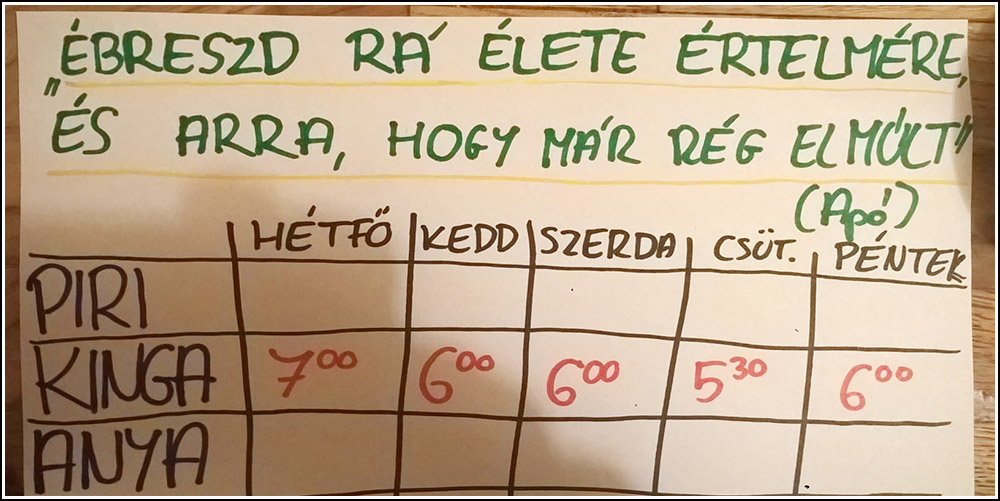 "ÉBRESZD RÁ ÉLETE ÉRTELMÉRE,
ÉS ARRA, HOGY MÁR RÉG ELMÚLT"
(Apó)
HÉTFŐ KEDD SZERDA CSÜT. PÉNTEK
PIRI
KINGA 7⁰⁰ 6⁰⁰ 6⁰⁰ 5³⁰ 6⁰⁰
ANYA